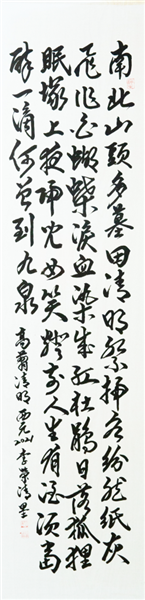 南北山頭多墓田清明祭掃各紛然紙灰
飛作白蝴蝶淚血染成紅杜鵑日落狐狸
眠塚上夜歸兒女笑燈前人生有酒須當
醉一滴何曾到九泉
高翥清明 西元2021 李榮 墨